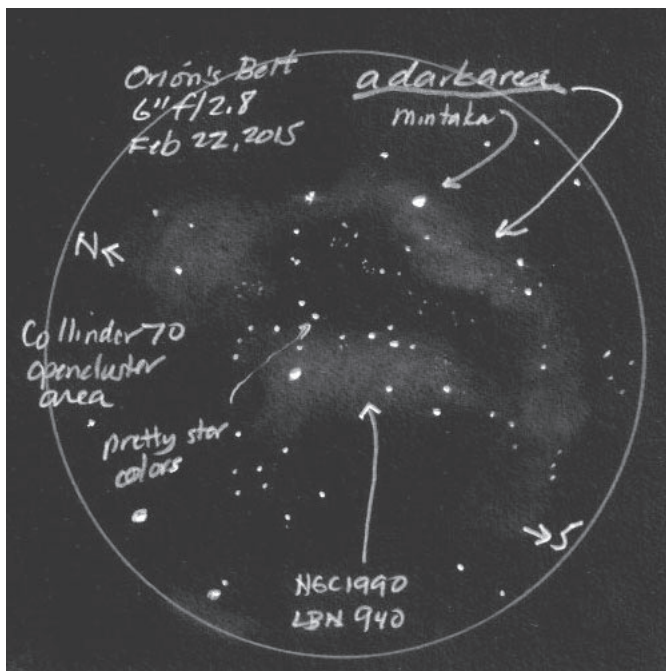 Orion's Belt
6" f/2.8
Feb 22, 2015
a dark area
mintaka
N
Collinder 70
open cluster
area
pretty star
colors
S
NGC 1990
LBN 940